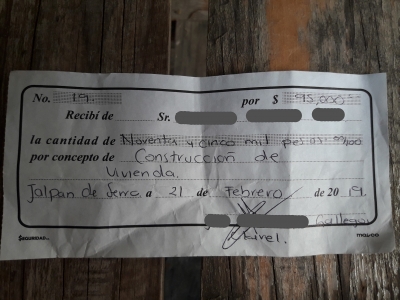 No. 19. por $ 95,000
Recibí de Sr.
la cantidad de Noventa y cinco mil pesos 00/100
por concepto de Construcción de
Vivienda.
Jalpan de Serra a 21 de Febrero de 2019.
Gallegos
SEGURIDAD